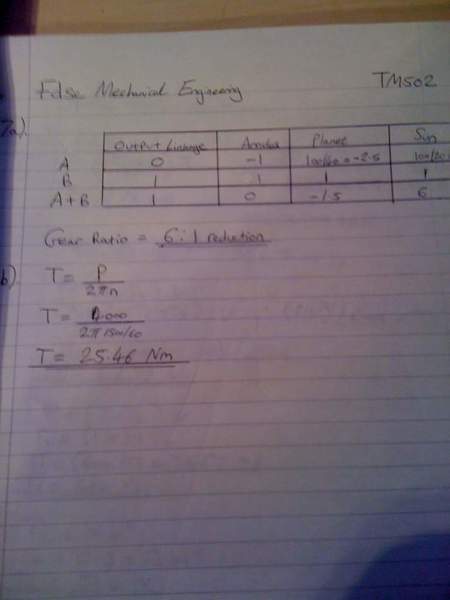 Fdsc Mechanical Engineering TM502
7a).
Output Linkage Annulus Planet Sun
A 0 -1 100/40 = -2.5 100/20
B 1 1 1 1
A+B 1 0 -1.5 6
Gear Ratio = 6:1 reduction
b) T = P
2πn
T = 4000
2π 1500/60
T = 25.46 Nm